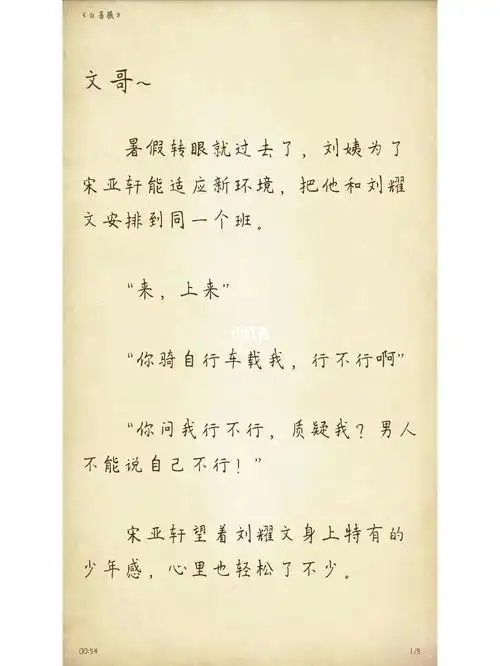 《白蔷薇》
文哥~
暑假转眼就过去了，刘姨为了
宋亚轩能适应新环境，把他和刘耀
文安排到同一个班。
“来，上来”
“你骑自行车载我，行不行啊”
“你问我行不行，质疑我？男人
不能说自己不行！”
宋亚轩望着刘耀文身上特有的
少年感，心里也轻松了不少。
00:54
1/5